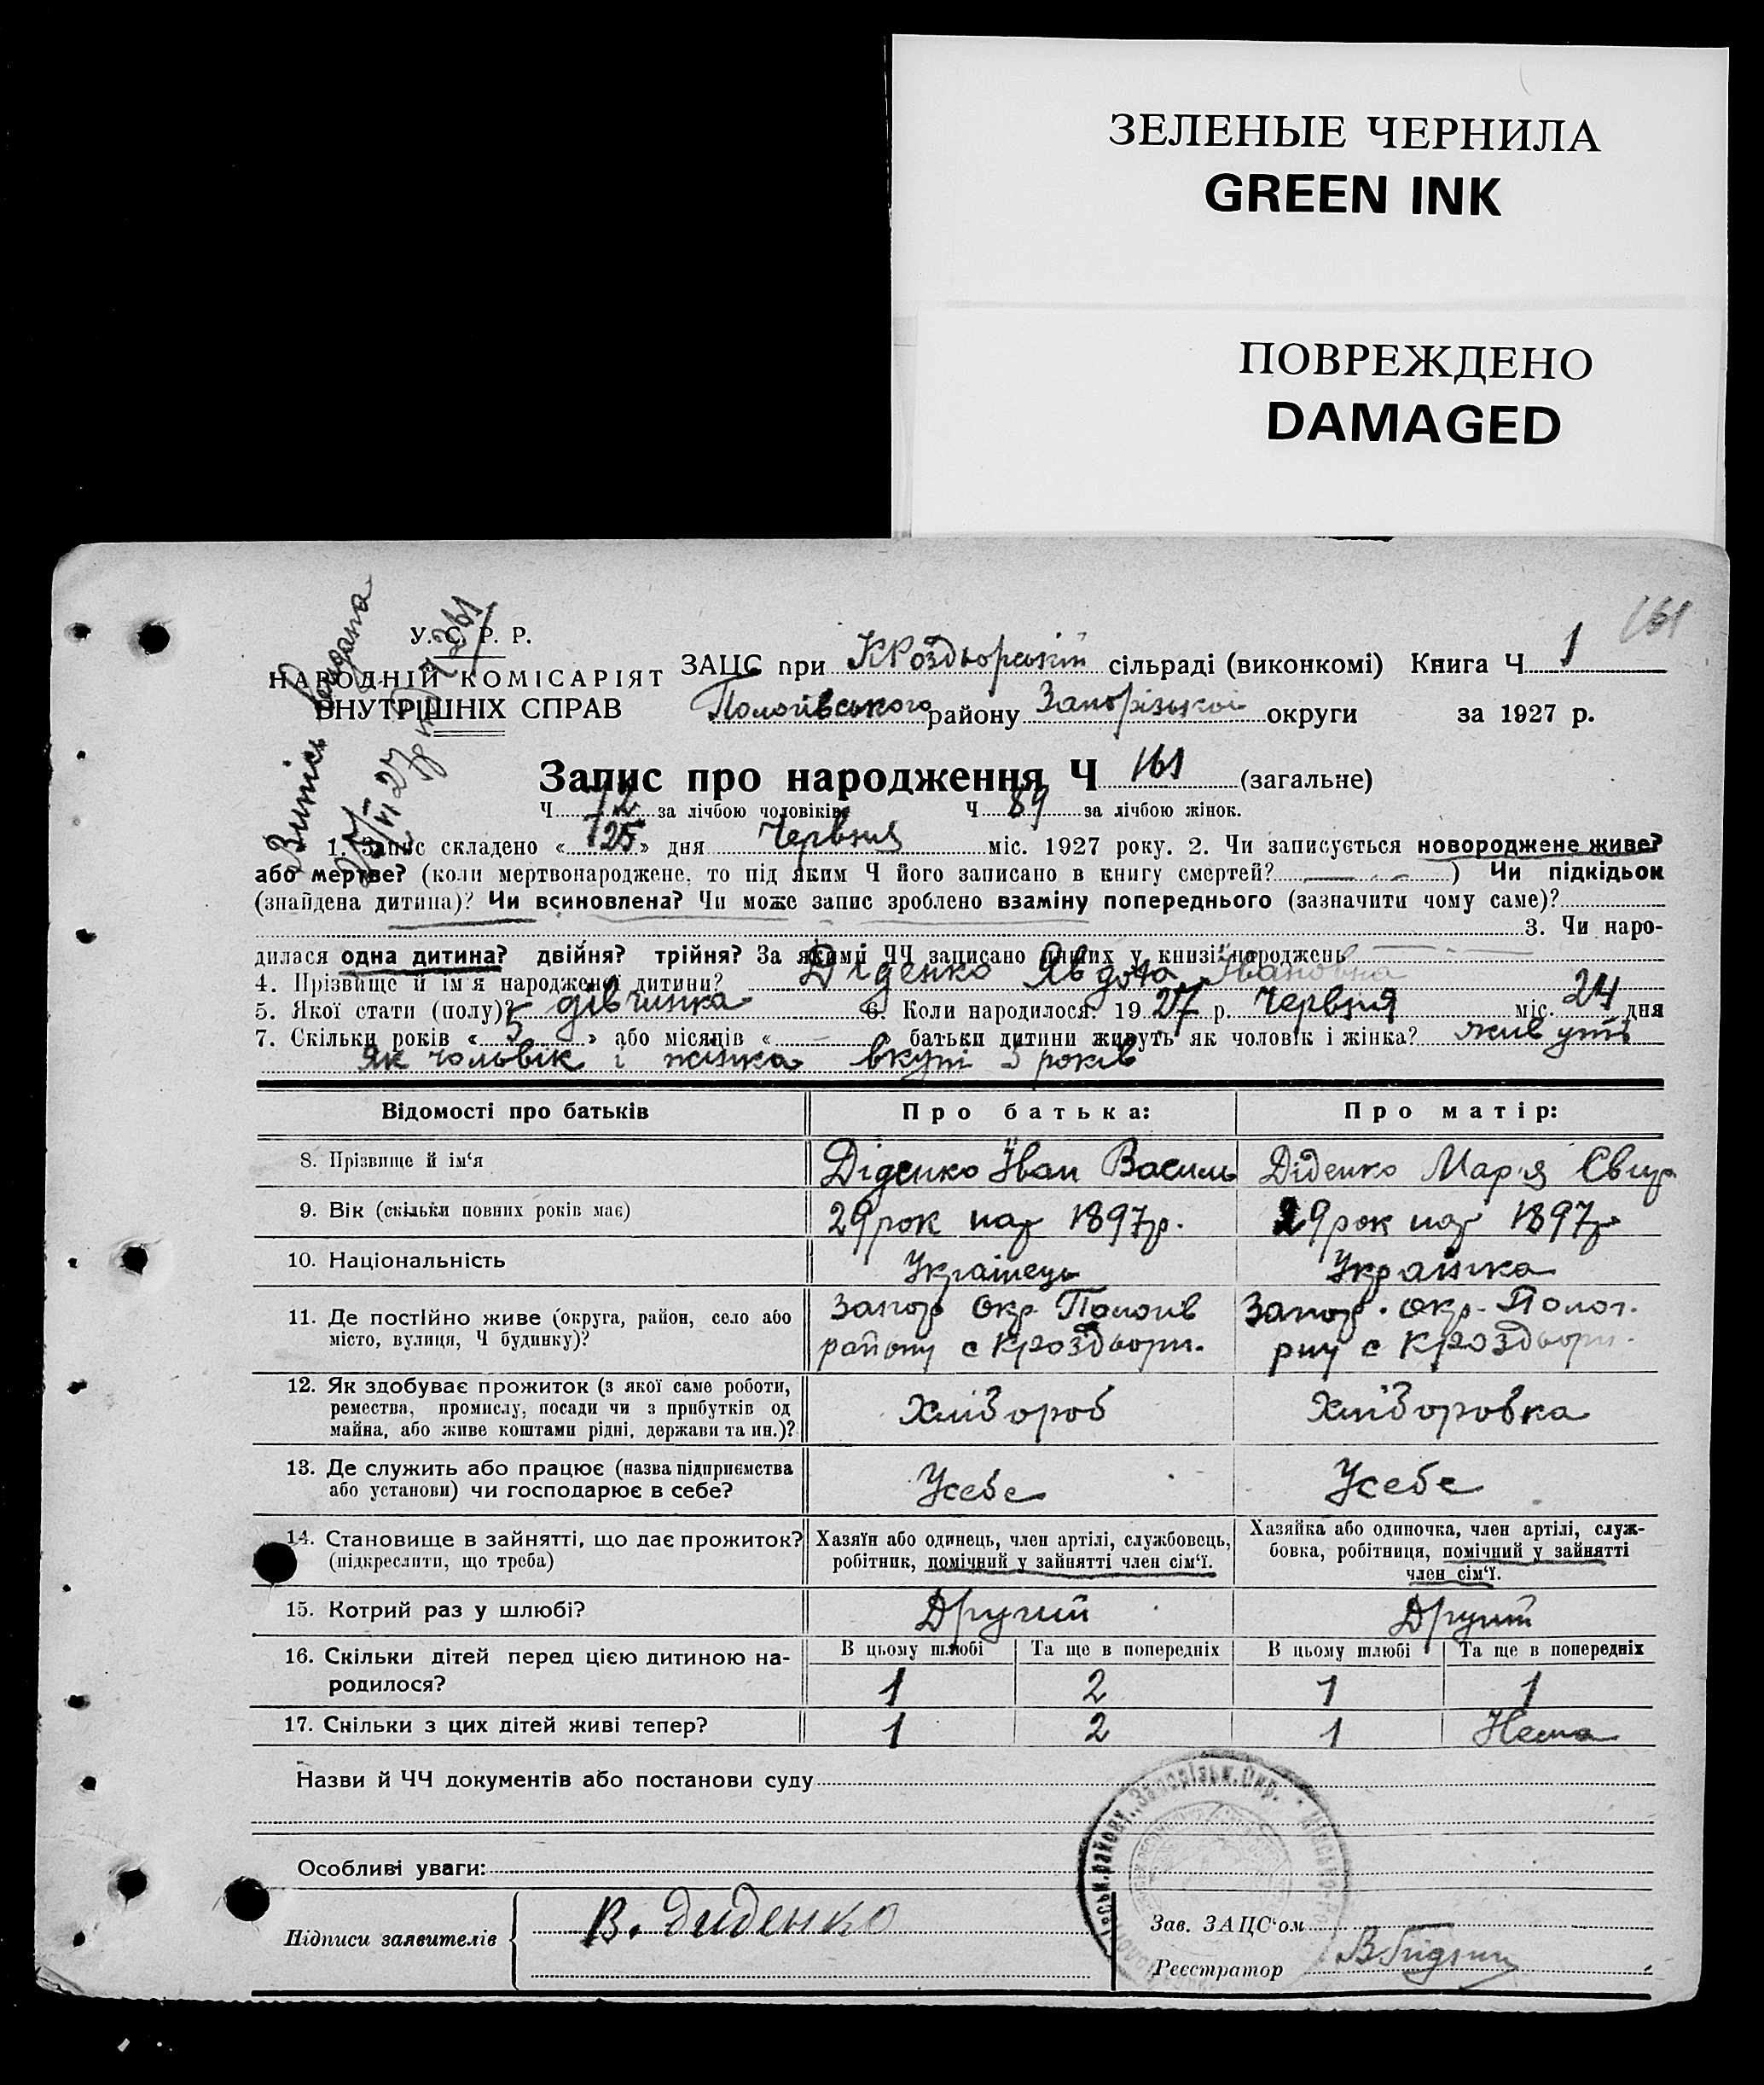 ЗЕЛЕНЫЕ ЧЕРНИЛА
GREEN INK
ПОВРЕЖДЕНО
DAMAGED
161
Випись видана
У. С. Р. Р.
НАРОДНІЙ КОМІСАРІЯТ
ВНУТРІШНІХ СПРАВ
ЗАЦС при ККоздворській сільраді (виконкомі) Книга Ч 1
Пологівського району Запорізької округи за 1927 р.
Запис про народження Ч 161 (загальне)
Ч 72 за лічбою чоловіків Ч 89 за лічбою жінок.
1. Запис складено « 25 » дня Червня міс. 1927 року. 2. Чи записується новороджене живе?
або мертве? (коли мертвонароджене, то під яким Ч його записано в книгу смертей? ) Чи підкідьок
(знайдена дитина)? Чи всиновлена? Чи може запис зроблено взаміну попереднього (зазначити чому саме)?
3. Чи наро-
дилася одна дитина? двійня? трійня? За якими ЧЧ записано інших у книзі народжень
4. Прізвище й ім'я народженої дитини? Діденко Явдоха Івановна
5. Якої стати (полу)? дівчинка 6. Коли народилося: 1927 р. Червня міс. 24 дня
7. Скільки років « 5 » або місяців « - » батьки дитини живуть як чоловік і жінка? живуть
як чоловік і жінка вкупі 5 років
Відомості про батьків Про батька: Про матір:
8. Прізвище й ім'я Діденко Іван Василь Діденко Мар'я
9. Вік (скільки повних років має) 29 рок нар 1897р. 29 рок нар 1897р
10. Національність Українець Українка
11. Де постійно живе (округа, район, село або Запор Окр Пологів Запор. окр. Полог.
місто, вулиця, Ч будинку)? району с
12. Як здобуває прожиток (з якої саме роботи,
ремества, промислу, посади чи з прибутків од Хлібороб Хліборовка
майна, або живе коштами рідні, держави та ин.)?
13. Де служить або працює (назва підприємства Усебе Усебе
або установи) чи господарює в себе?
14. Становище в зайнятті, що дає прожиток? Хазяїн або одинець, член артілі, службовець, Хазяйка або одиночка, член артілі, служ-
(підкреслити, що треба) робітник, помічний у зайнятті член сім'ї. бовка, робітниця, помічний у зайнятті
член сім'ї.
15. Котрий раз у шлюбі? Другий Другий
16. Скільки дітей перед цією дитиною на- В цьому шлюбі Та ще в попередніх В цьому шлюбі Та ще в попередніх
родилося? 1 2 1 1
17. Скільки з цих дітей живі тепер? 1 2 1 Нема
Назви й ЧЧ документів або постанови суду
Особливі уваги:
Підписи заявителів В. Диденко
Зав. ЗАЦС'ом
Реєстратор
району, Запорізьк. Окр.